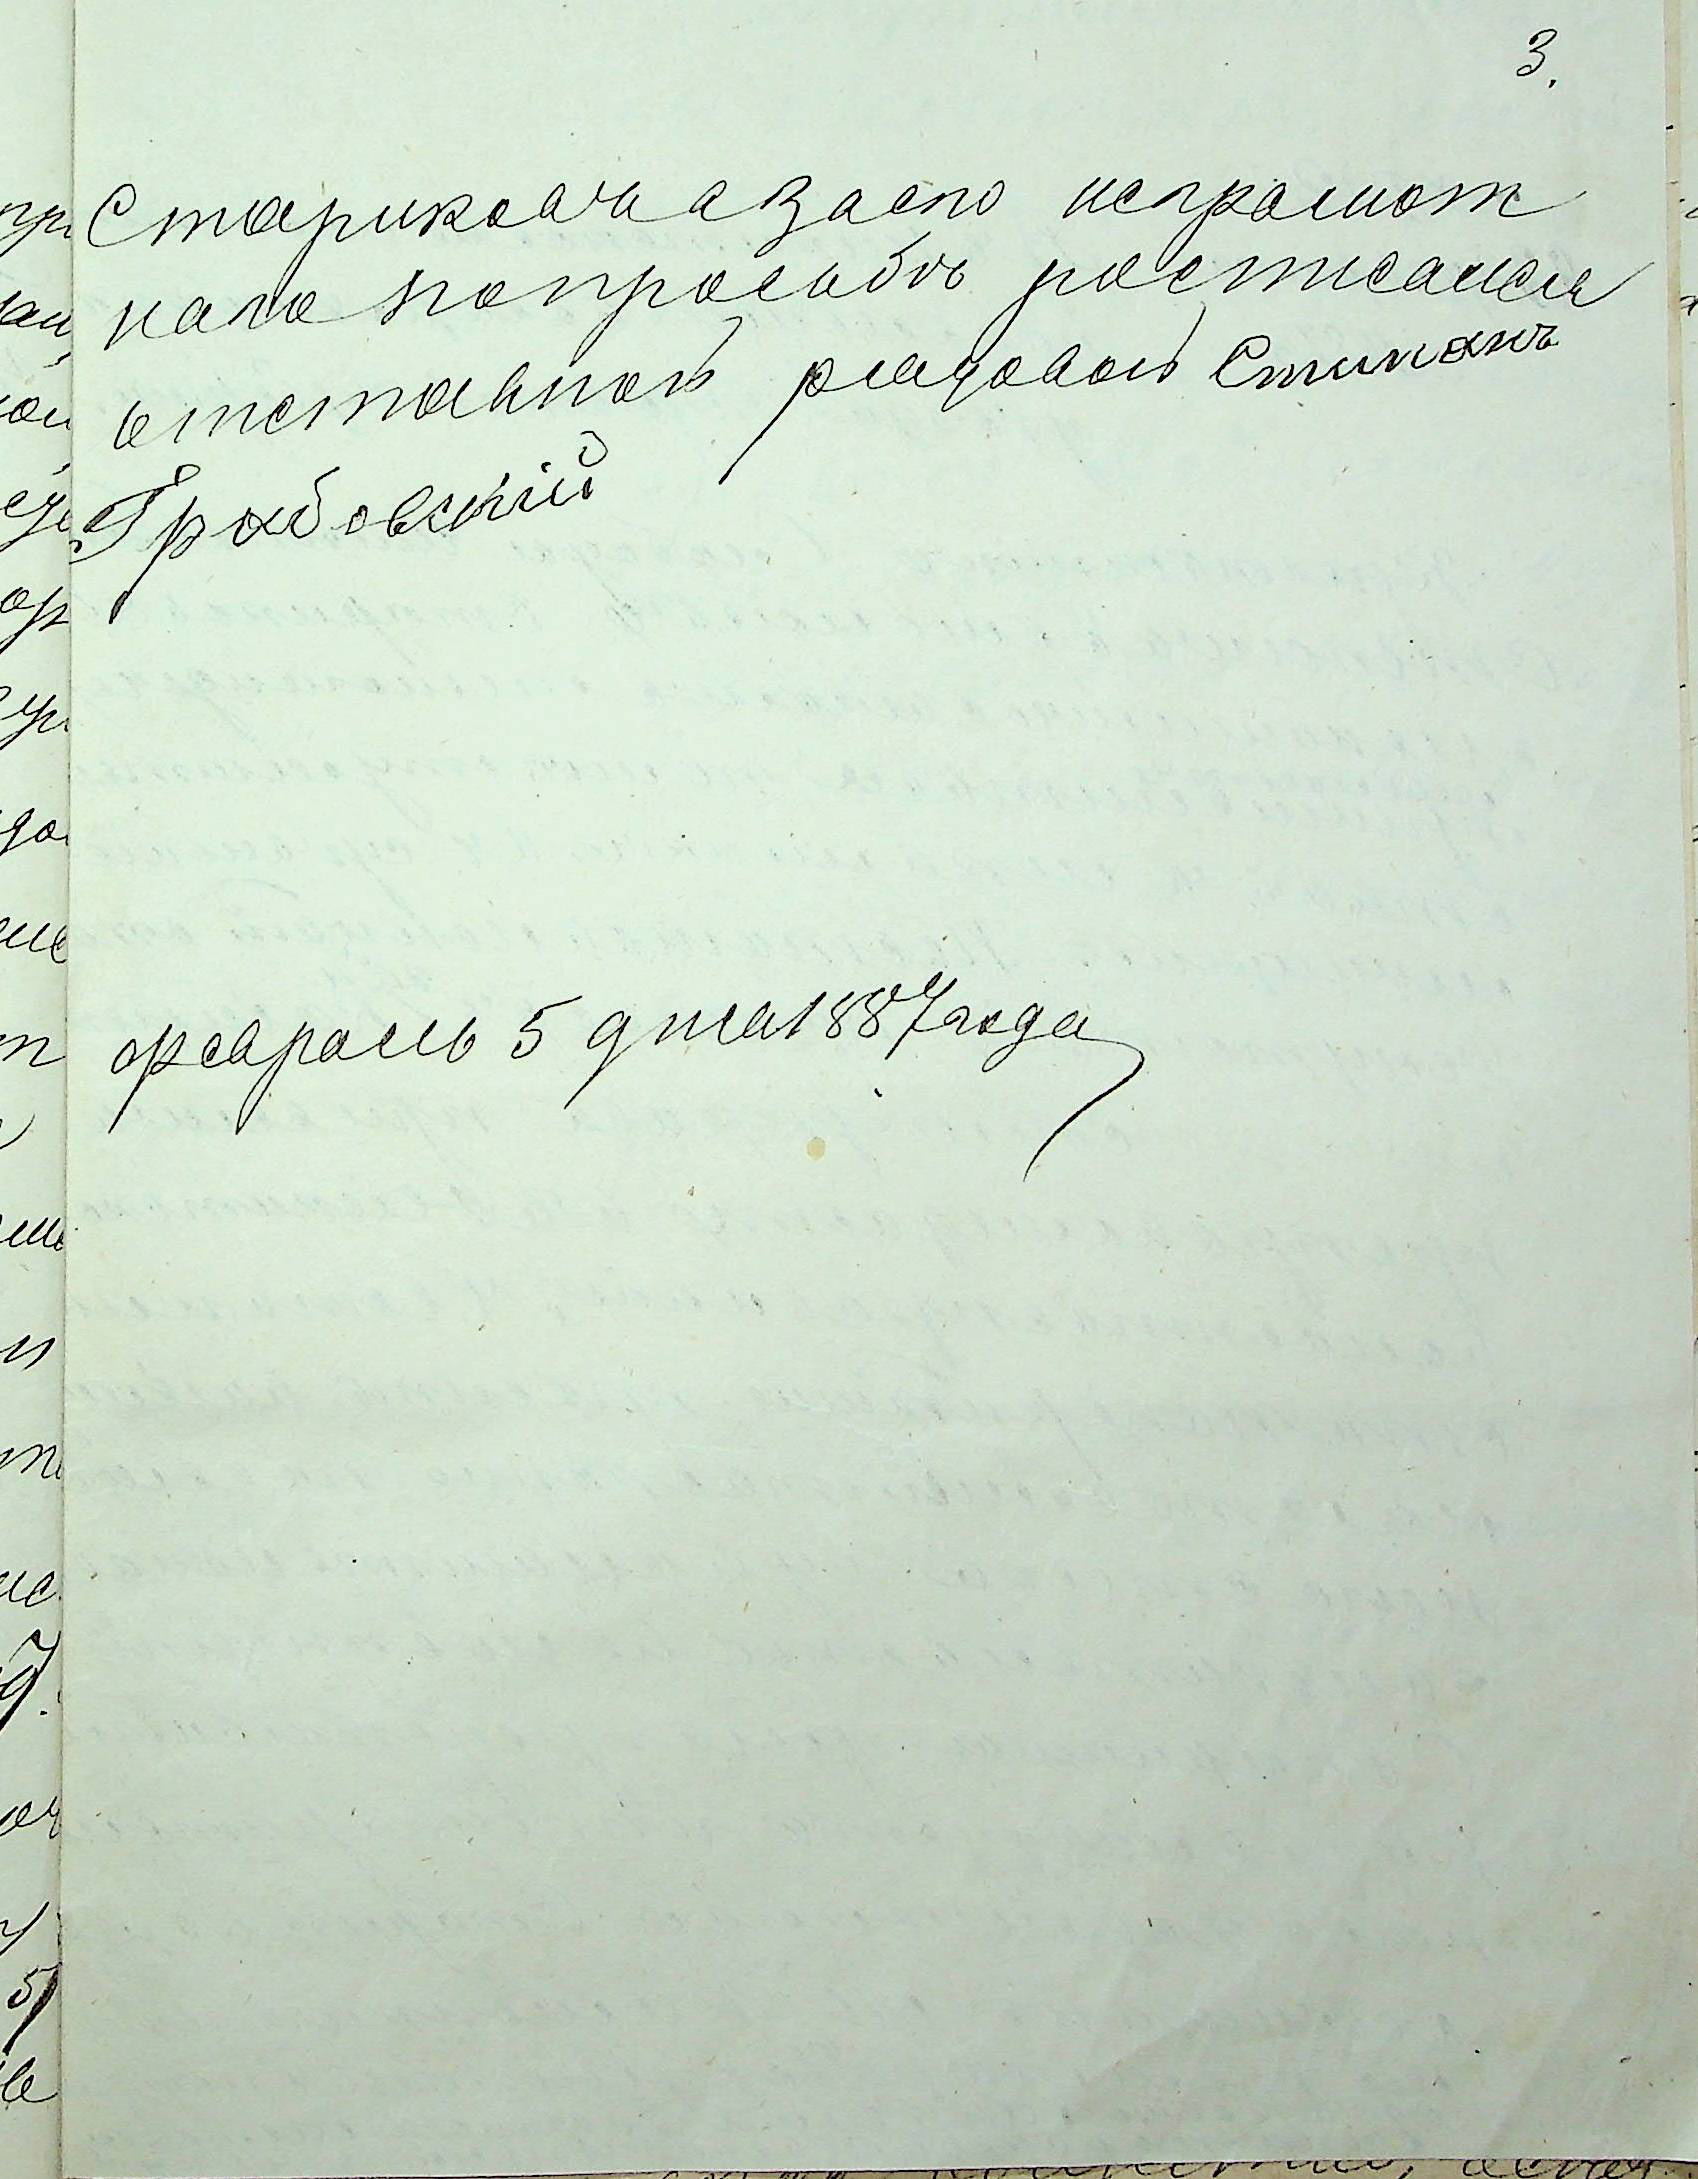 3.
Стариковича а Заего неграмот
наго попросьбъ росписался
отставной рядовой Стипанъ
Грабовский
февраль 5 дня 1887 года